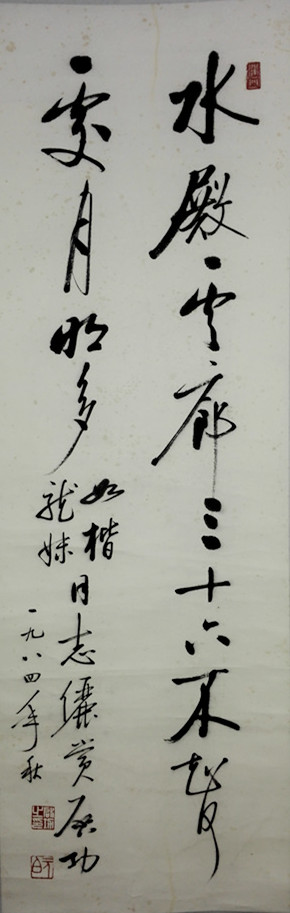 水殿雲廊三十六不知何
處月明多
如楷
龍妹
同志儷賞 启功
一九八四年秋